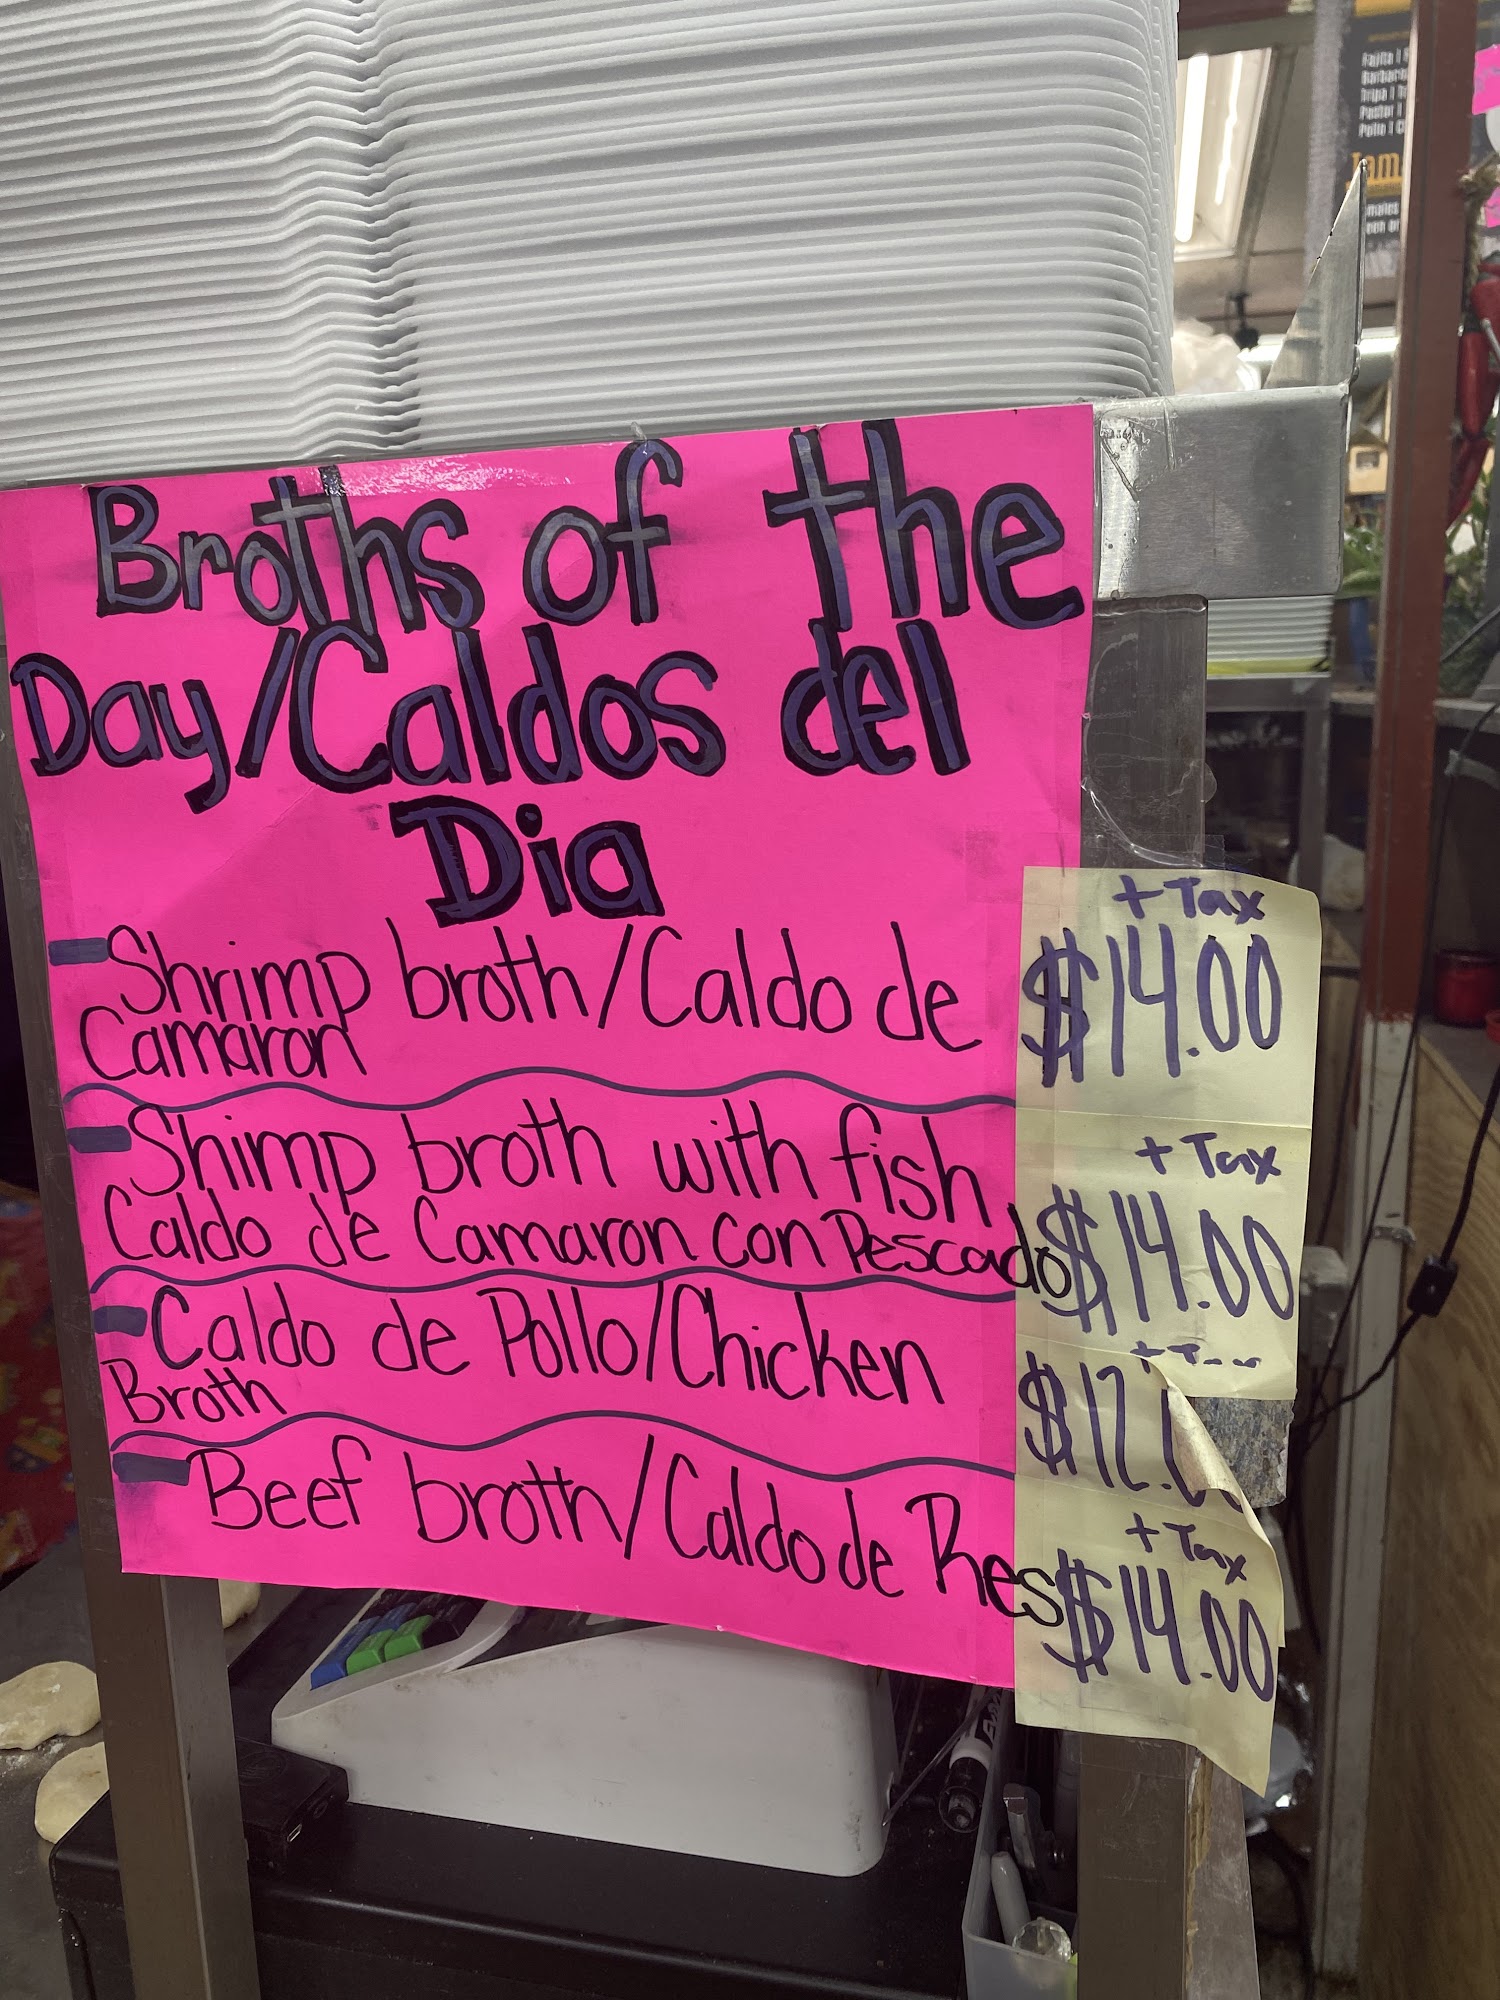 Broths of the
Day/Caldos del
Dia
Shrimp broth/Caldo de
Camaron
+ Tax
$14.00
Shimp broth with fish
Caldo de Camaron con Pescado
+ Tax
$14.00
Caldo de Pollo/Chicken
Broth
Beef broth/Caldo de Res
+ Tax
$14.00